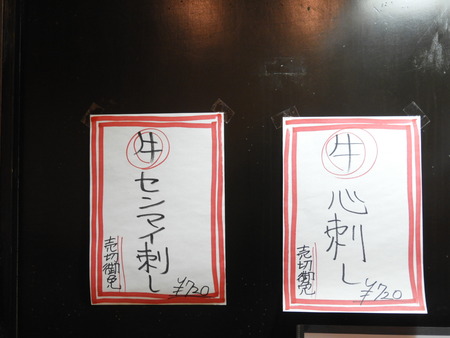 牛
心刺し
売切御免
¥720
牛
センマイ刺し
売切御免
¥720